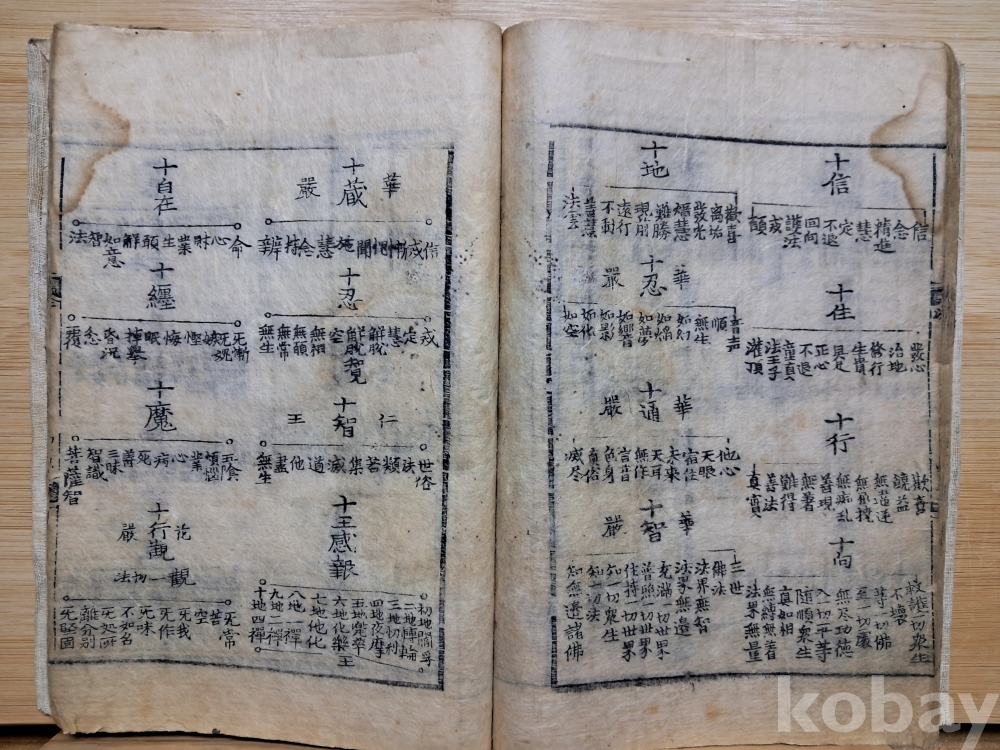 十信
信
念
精進
慧
定
不退
回向
護法
戒
願
十住
發心
治地
修行
生貴
具足
正心
不退
童真
法王子
灌頂
十行
歡喜
饒益
無違逆
無屈撓
無痴乱
善現
無著
難得
善法
真實
十向
救護一切衆生
不壞
等一切佛
至一切處
無尽功德
入一切平等
隨順衆生
真如相
無縛無著
法界無量
十地
歡喜
离垢
發光
焰慧
難勝
現前
遠行
不動
善慧
法雲
華嚴
十忍
音声
順
無生
如幻
如焰
如夢
如響
如影
如化
如空
華嚴
十通
他心
天眼
宿住
未來
天耳
無作
言音
色身
真俗
滅尽
華嚴
十智
三世
佛法
法界無智
法界無邊
充滿一切世界
普照一切世界
住持一切世界
知一切衆生
知一切法
知無邊諸佛
華嚴
十蔵
信
戒
慚
愧
聞
施
慧
念
持
辨
十忍
戒
定
慧
解脫
解脫
空
無相
無願
無常
無生
仁王
十智
世俗
法
類
苦
集
滅
道
他
盡
無生
十王感報
初地閻浮
二地轉輪
三地忉利
四地夜摩
五地兜率
六地化樂王
七地他化
八地一禪
九地二禪
十地四禪
十自在
命
心
財
業
生
解
智
法
十纏
悔
眠
掉擧
昏沉
忿
覆
十魔
五陰
煩惱
業
心
病
死
善
三昧
智識
菩薩智
十行觀
觀一切法
无常
苦
空
无我
无作
无味
不如名
无処所
離分別
无堅固